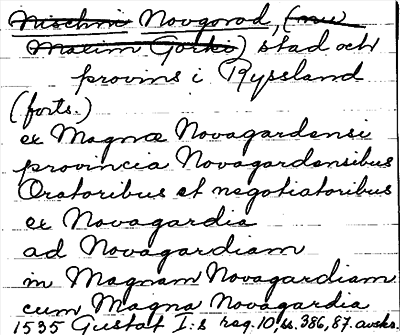 Nischni Novgorod, (nu
Maxim Gorki) stad och
provins i Ryssland
(forts.)
ex Magna Novagardensi
provincia Novagardensibus
Oratoribus et negotiatoribus
ex Novagardia
ad Novagardiam
in Magnam Novagardiam
cum Magna Novagardia
1535 Gustaf I:s reg. 10, ss. 386, 87. avskr.